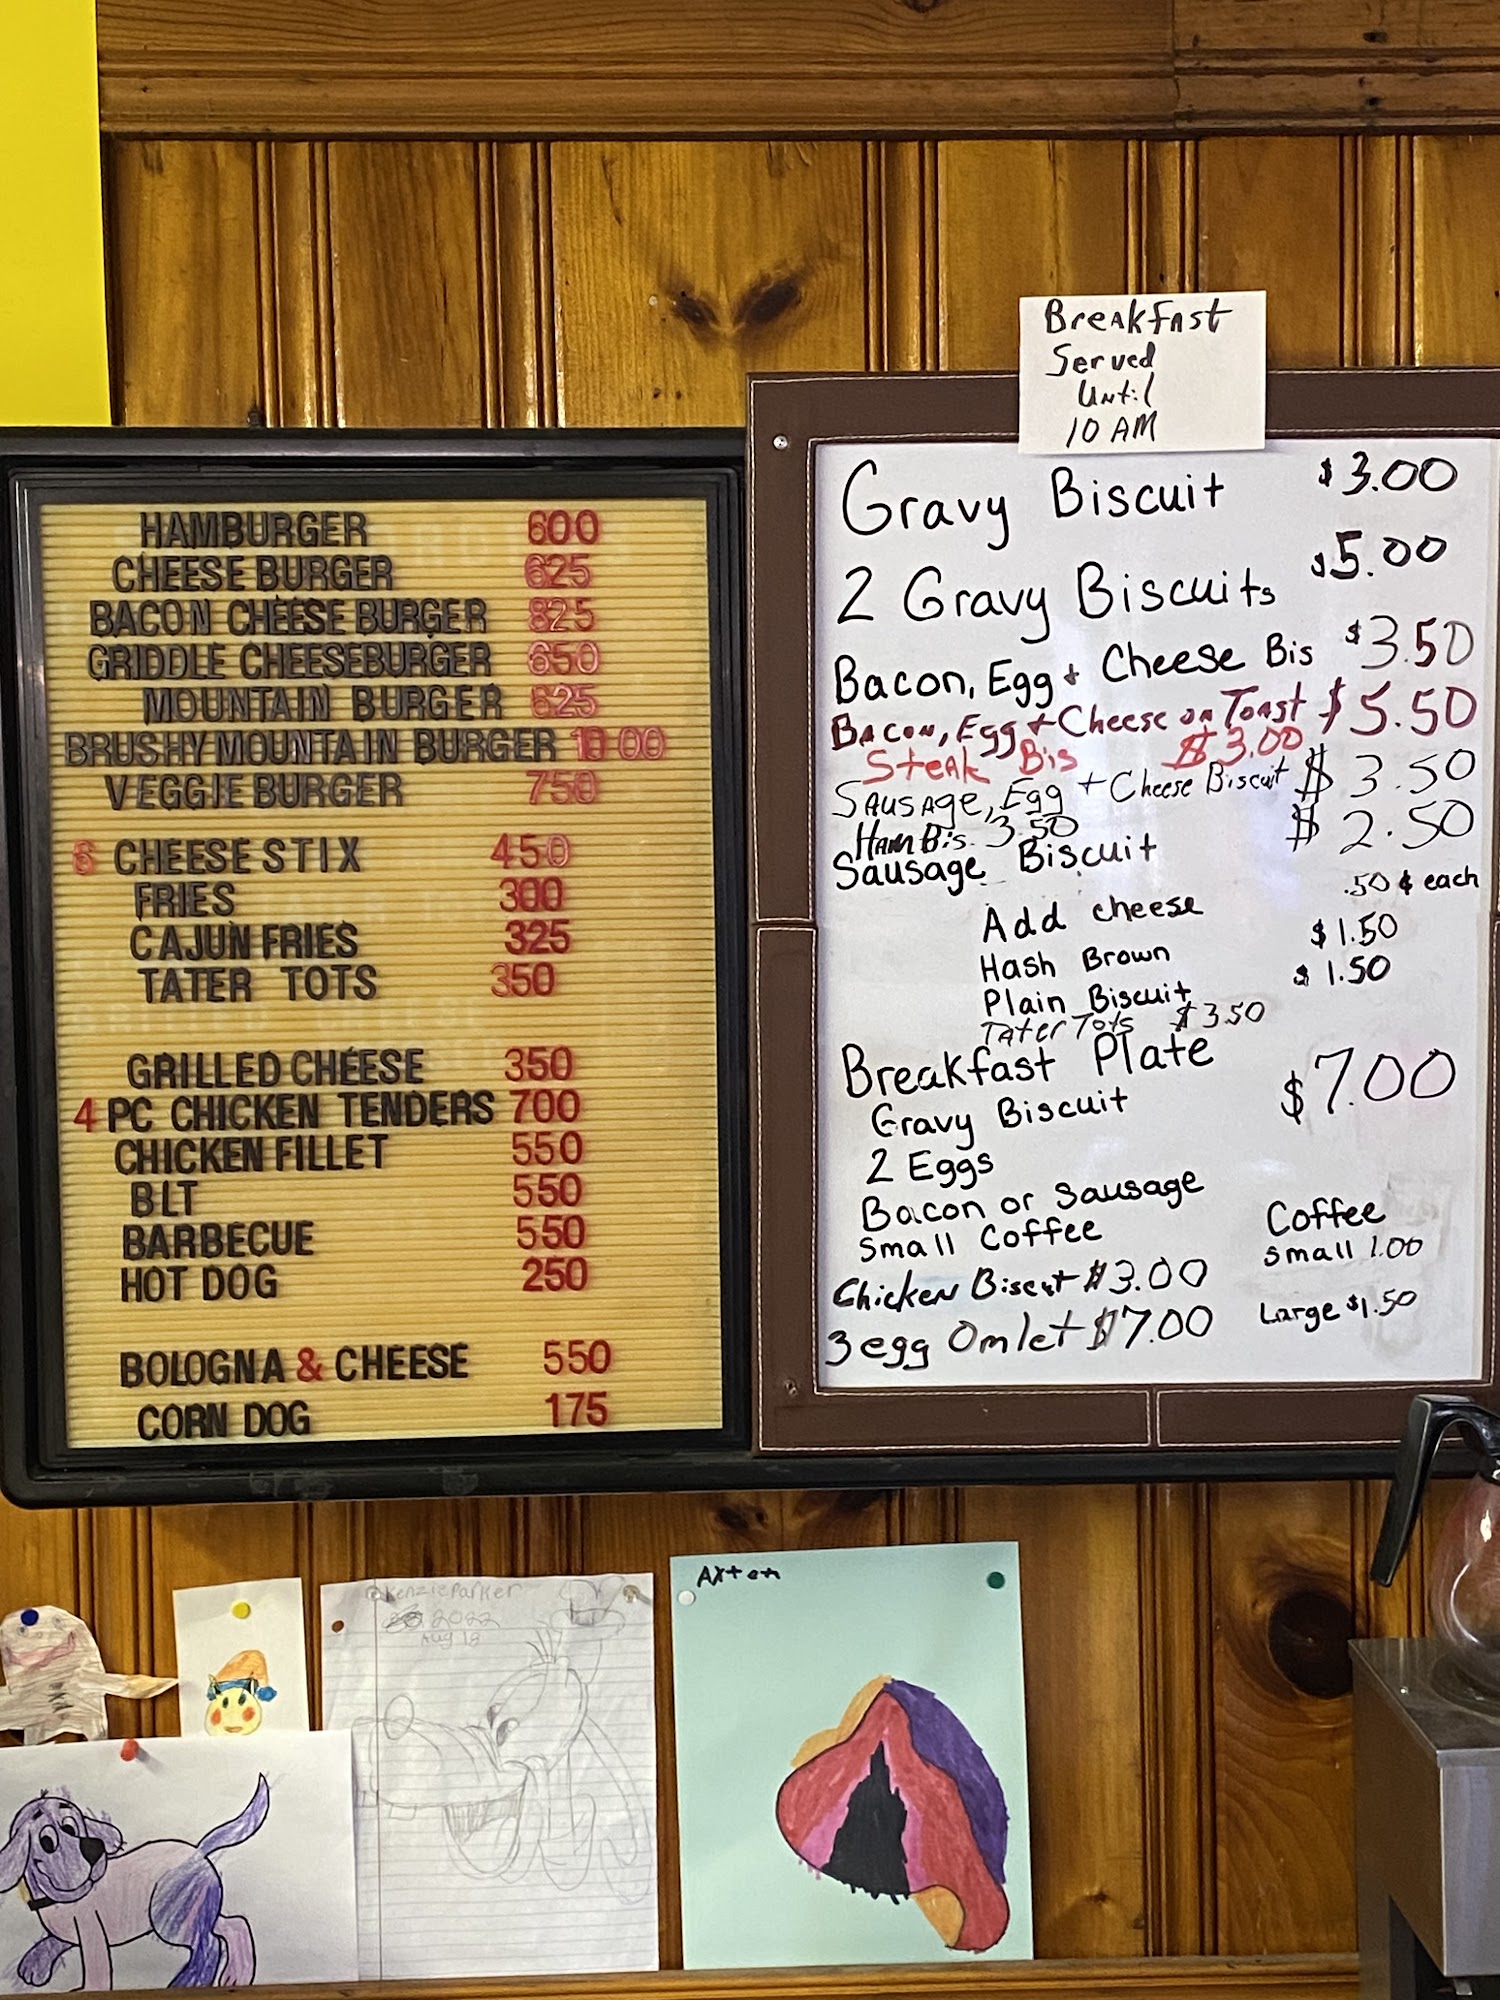 HAMBURGER 600
CHEESE BURGER 625
BACON CHEESE BURGER 825
GRIDDLE CHEESEBURGER 650
MOUNTAIN BURGER 625
BRUSHY MOUNTAIN BURGER 10 00
VEGGIE BURGER 750
6 CHEESE STIX 450
FRIES 300
CAJUN FRIES 325
TATER TOTS 350
GRILLED CHEESE 350
4 PC CHICKEN TENDERS 700
CHICKEN FILLET 550
BLT 550
BARBECUE 550
HOT DOG 250
BOLOGNA & CHEESE 550
CORN DOG 175
Breakfast
Served
Until
10 AM
Gravy Biscuit $3.00
2 Gravy Biscuits $5.00
Bacon, Egg + Cheese Bis $3.50
Bacon, Egg + Cheese on Toast $5.50
Steak Bis $3.00
Sausage, Egg + Cheese Biscuit $3.50
Ham Bis. 3.50
Sausage Biscuit $2.50
Add cheese .50¢ each
Hash Brown $1.50
Plain Biscuit $1.50
Tater Tots $3.50
Breakfast Plate $7.00
Gravy Biscuit
2 Eggs
Bacon or Sausage
Small Coffee
Chicken Biscut $3.00
3 egg Omlet $7.00
Coffee
Small 1.00
Large $1.50
Kenzie Parker
2022
Aug 18
Axten